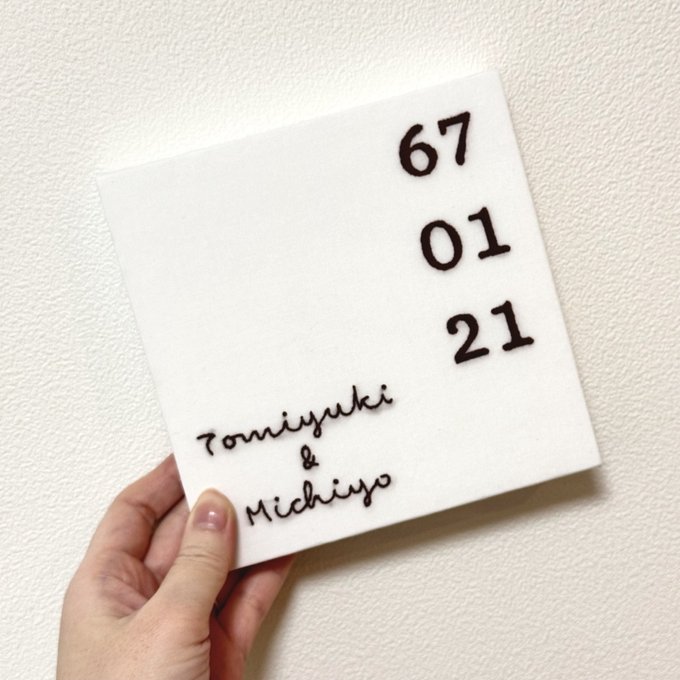 67
01
21
Tomiyuki
&
Michiyo